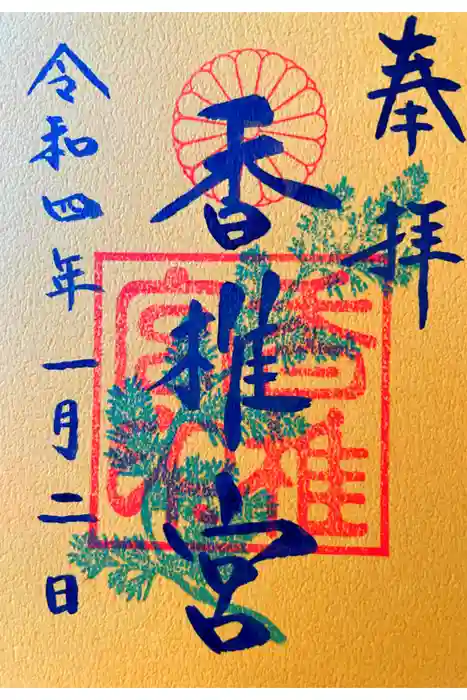 奉拝
香椎宮
令和四年一月二日
香椎宮印